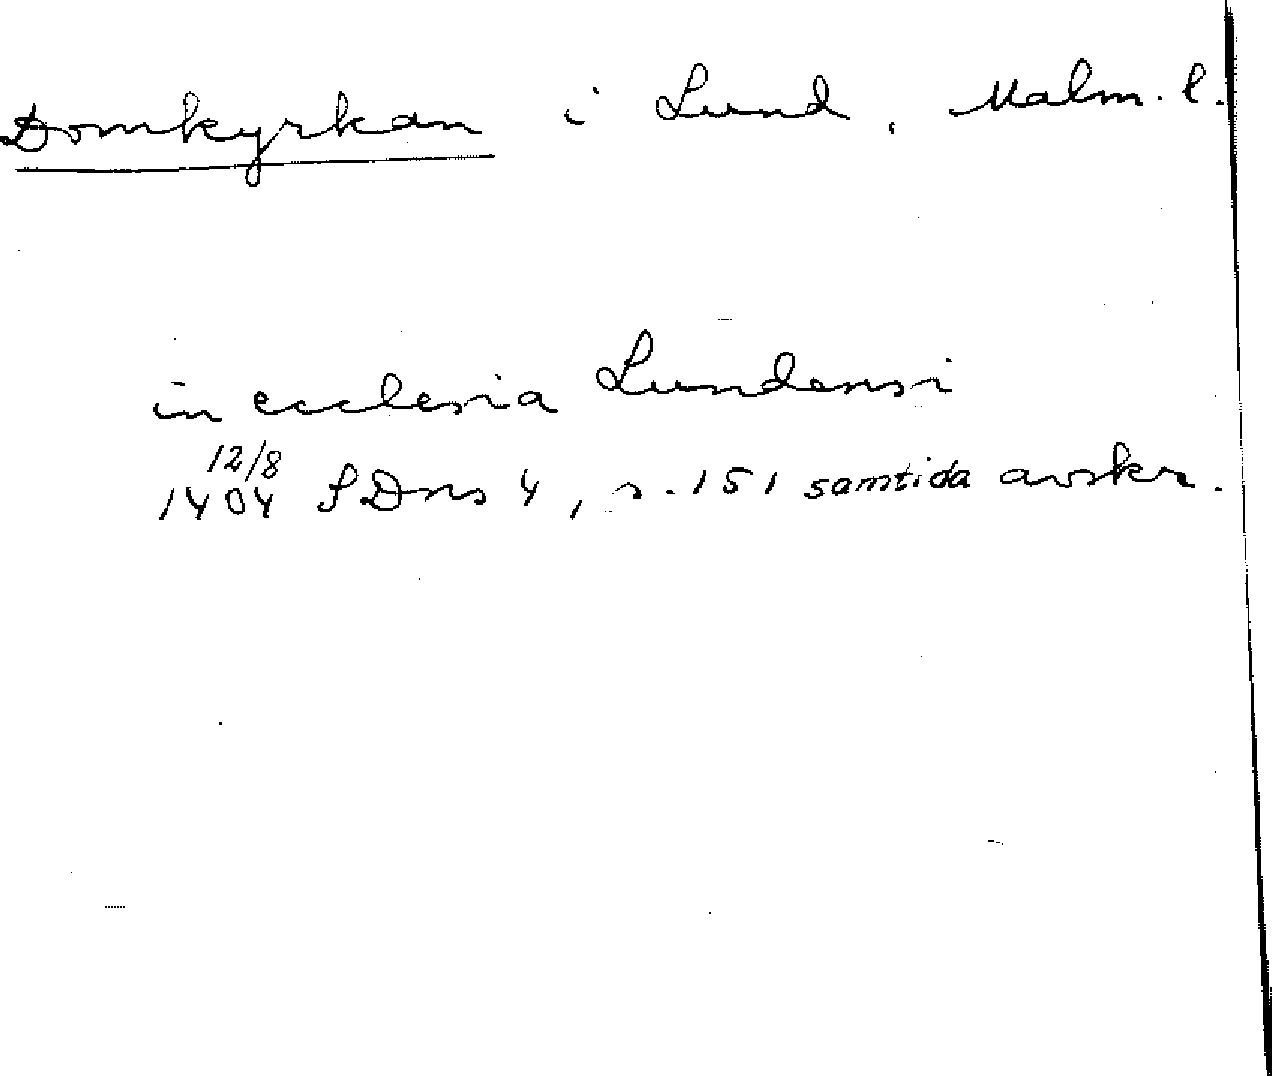 Domkyrkan i Lund, Malm. l.
in ecclesia Lundensi
12/8
1404 SDns 4, s. 151 samtida avskr.